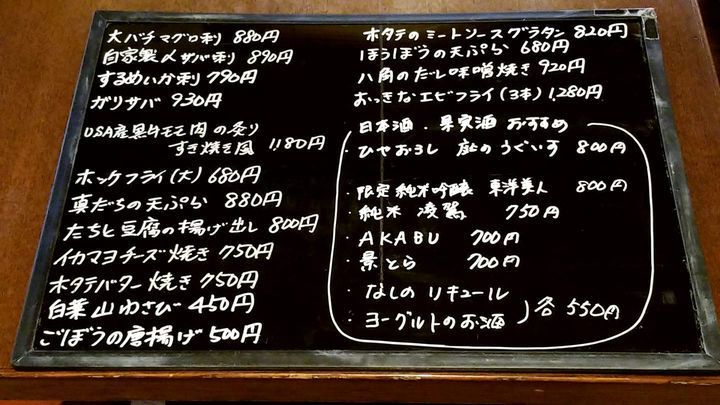 大バチマグロ刺 880円
自家製〆サバ刺 890円
するめいか刺 790円
ガリサバ 930円
USA産黒牛モモ肉の炙り
すき焼き風 1,180円
ホッケフライ(大) 680円
真だちの天ぷら 880円
たちと豆腐の揚げ出し 800円
イカマヨチーズ焼き 750円
ホタテバター焼き 750円
白菜山わさび 450円
ごぼうの唐揚げ 500円
ホタテのミートソースグラタン 820円
ほうぼうの天ぷら 680円
八角のだし味噌焼き 920円
おっきなエビフライ(3本) 1,280円
日本酒・果実酒 おすすめ
・ひやおろし 庭のうぐいす 800円
・限定純米吟醸 東洋美人 800円
・純米 凌駕 750円
・AKABU 700円
・景とら 700円
・なしのリキュール
・ヨーグルトのお酒 各550円